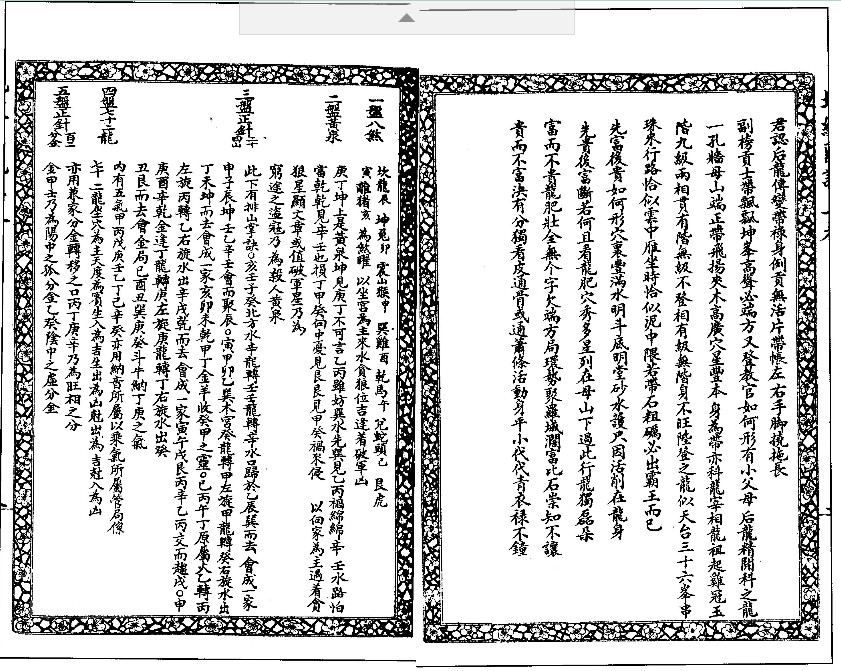 君認后龍傳變帶祿身倒貢無活片帶帳左右手脚撓拖長
副榜貢士帶飄飄坤峯高聲必端方又發教官如何形有小父母后龍精開科之龍
一孔牆母山端正帶飛揚夾木高廣穴星豐本身為帶亦科龍宰相龍祖起雞冠玉
階九級兩相貫有階無級不登相有級無階身不旺陞登之龍似天台三十六峯串
珠來行路恰似雲中雁坐時恰似泥中隈若帶石粗礪必出霸王而已
先富後貴如何形穴裏豐滿水明斗底明堂砂水護尸因活削在龍身
先貴後富斷若何且看龍肥穴秀多星列在母山下過此行龍獨磊朵
富而不貴龍肥壯全無个字欠端方局環勢聚羅城濶富比石崇知不讓
貴而不富決有分獨看皮適膏或通蕭條活動身平小代代青衣祿不鐘
一盤八煞
坎龍辰 坤兔卯 震山猴申 巽雞酉 乾馬午 兌蛇頭巳 艮虎
寅 離猪亥 為煞曜 以坐宮為主來水貪狼位吉逢着破軍凶
二盤黄泉
庚丁坤上是黄泉坤見庚丁不可言乙丙雖妨巽水先巽見乙丙禍綿綿辛壬水路怕
當乾乾見辛壬也損丁甲癸向中憂見艮艮見甲癸禍不侵 以向家為主遇着貪
狼星顯文章或值破軍星乃為
窮途之盗寇乃為殺人黄泉
三盤正針二十四山
此下有排山掌訣○亥壬子癸北方水辛龍轉壬壬龍轉辛水口歸於乙辰巽而去會成一家
申子辰坤壬乙辛壬會而聚辰○寅甲卯乙巽木宮癸龍轉甲左旋甲龍轉癸右旋水出
丁未坤而去會成一家亥卯未乾甲丁金羊收癸甲之靈○巳丙午丁原屬火乙轉丙
左旋丙轉乙右旋水出辛戌乾而去會成一家寅午戌艮丙辛乙丙交而趨戌○申
庚酉辛乾金逢丁龍轉庚左旋庚龍轉丁右旋水出癸
丑艮而去會金局巳酉丑巽庚癸斗牛納丁庚之氣
四盤七十二龍
內有五氣甲丙戊庚壬乙丁己辛癸亦用納音所屬以乘氣所屬管局傍
七十二龍坐穴為主天度為賓生入為吉生出為凶尅出為吉尅入為凶
五盤正針百二分金
亦用兼家分金轉移之口丙丁庚辛乃為旺相之分
金甲壬乃為陽中之孤分金乙癸陰中之虛分金